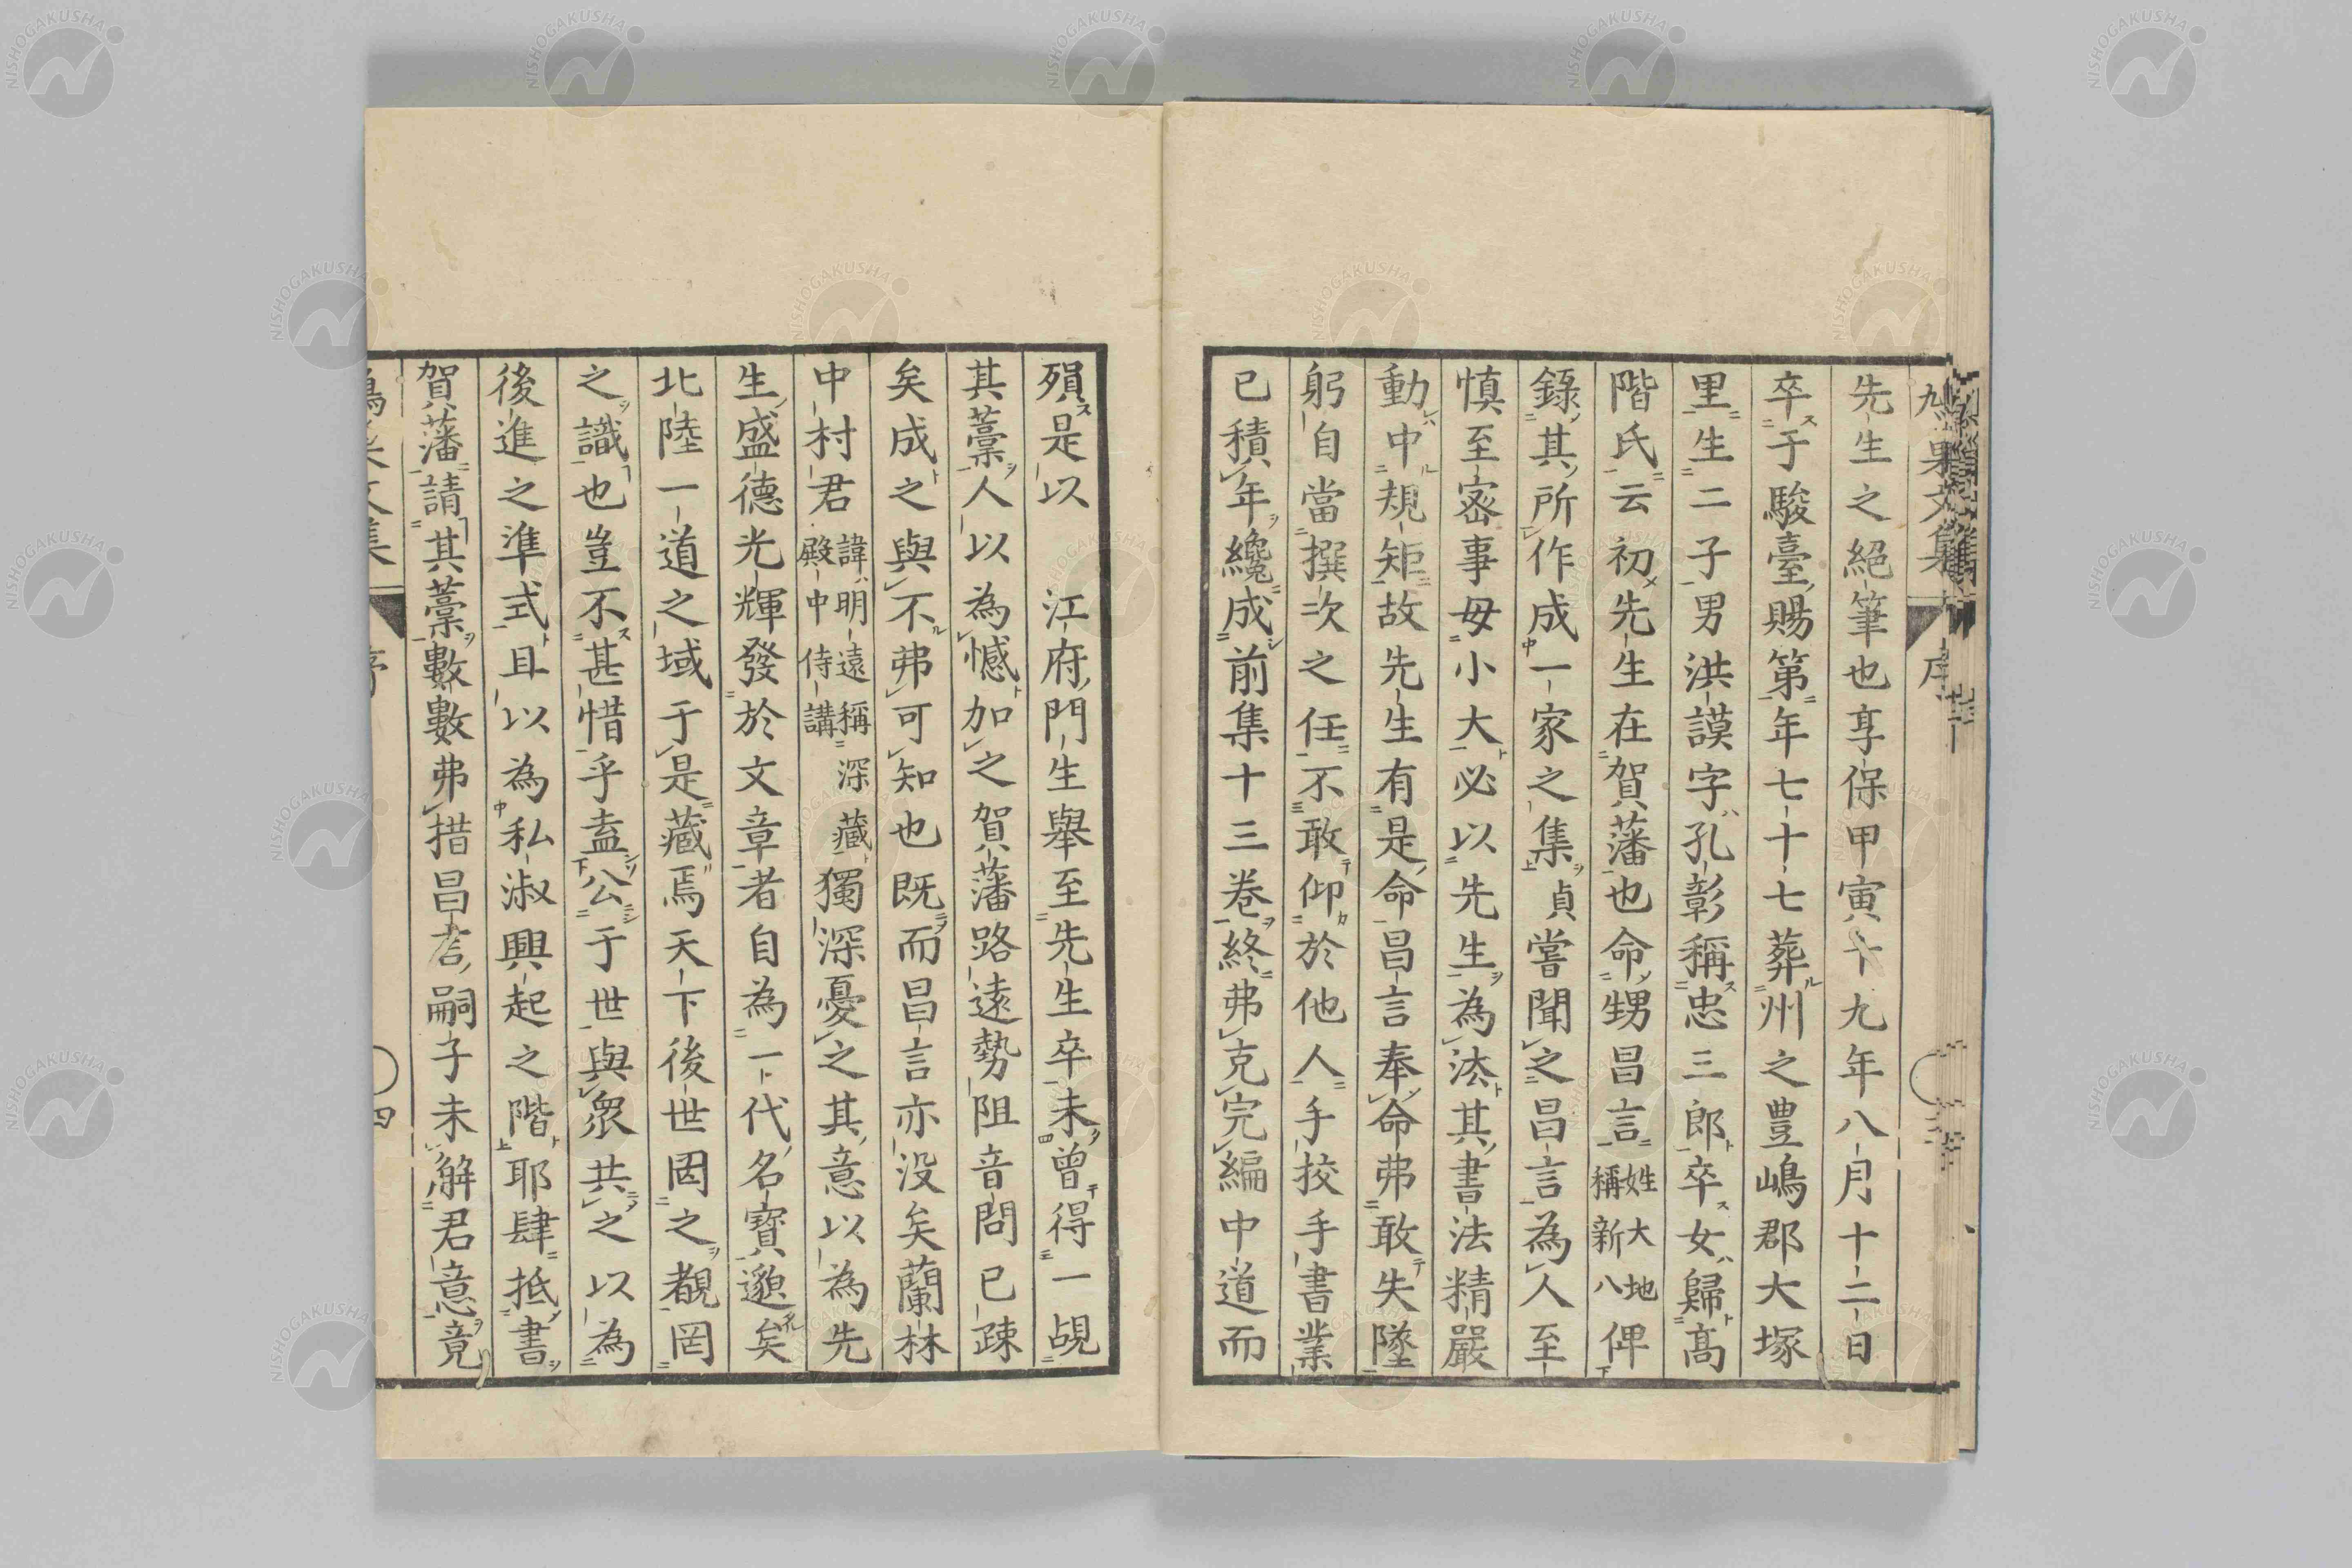 先生之絕筆也享保甲寅十九年八月十二日
卒于駿臺賜第年七十七葬州之豊嶋郡大塚
里生二子男洪謨字孔彰稱忠三郎卒女歸髙
階氏云初先生在賀藩也命甥昌言姓大地稱新八俾
錄其所作成一家之集貞嘗聞之昌言為人至
慎至宻事毋小大必以先生為法其書法精嚴
動中規矩故先生有是命昌言奉命弗敢失墜
躬自當撰次之任不敢仰於他人手挍手書業
已積年纔成前集十三卷終弗克完編中道而
殞是以　江府門生舉至先生卒未曾得一覘
其藁人以為憾加之賀藩路遠勢阻音問已疎
矣成之與不弗可知也既而昌言亦没矣蘭林
中村君諱明遠稱深藏殿中侍講獨深憂之其意以為先
生盛德光輝發於文章者自為一代名寳邈矣
北陸一道之域于是藏焉天下後世因之覩罔
之識也豈不甚惜乎盍公于世與衆共之以為
後進之準式且以為私淑興起之階耶肆抵書
賀藩請其藁數數弗措昌言嗣子未解君意竟
鳩巢文集
序
四
NISHOGAKUSHA